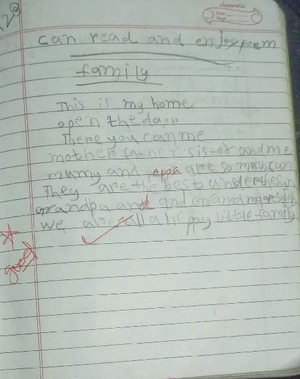 classmate
can read and enjoy poem
family
This is my home
open the door
There you can me
mother father sister and me
mumy and appa are so much fun
They are the best under the sun
grandpa and and grandma
we are all a happy little family
good